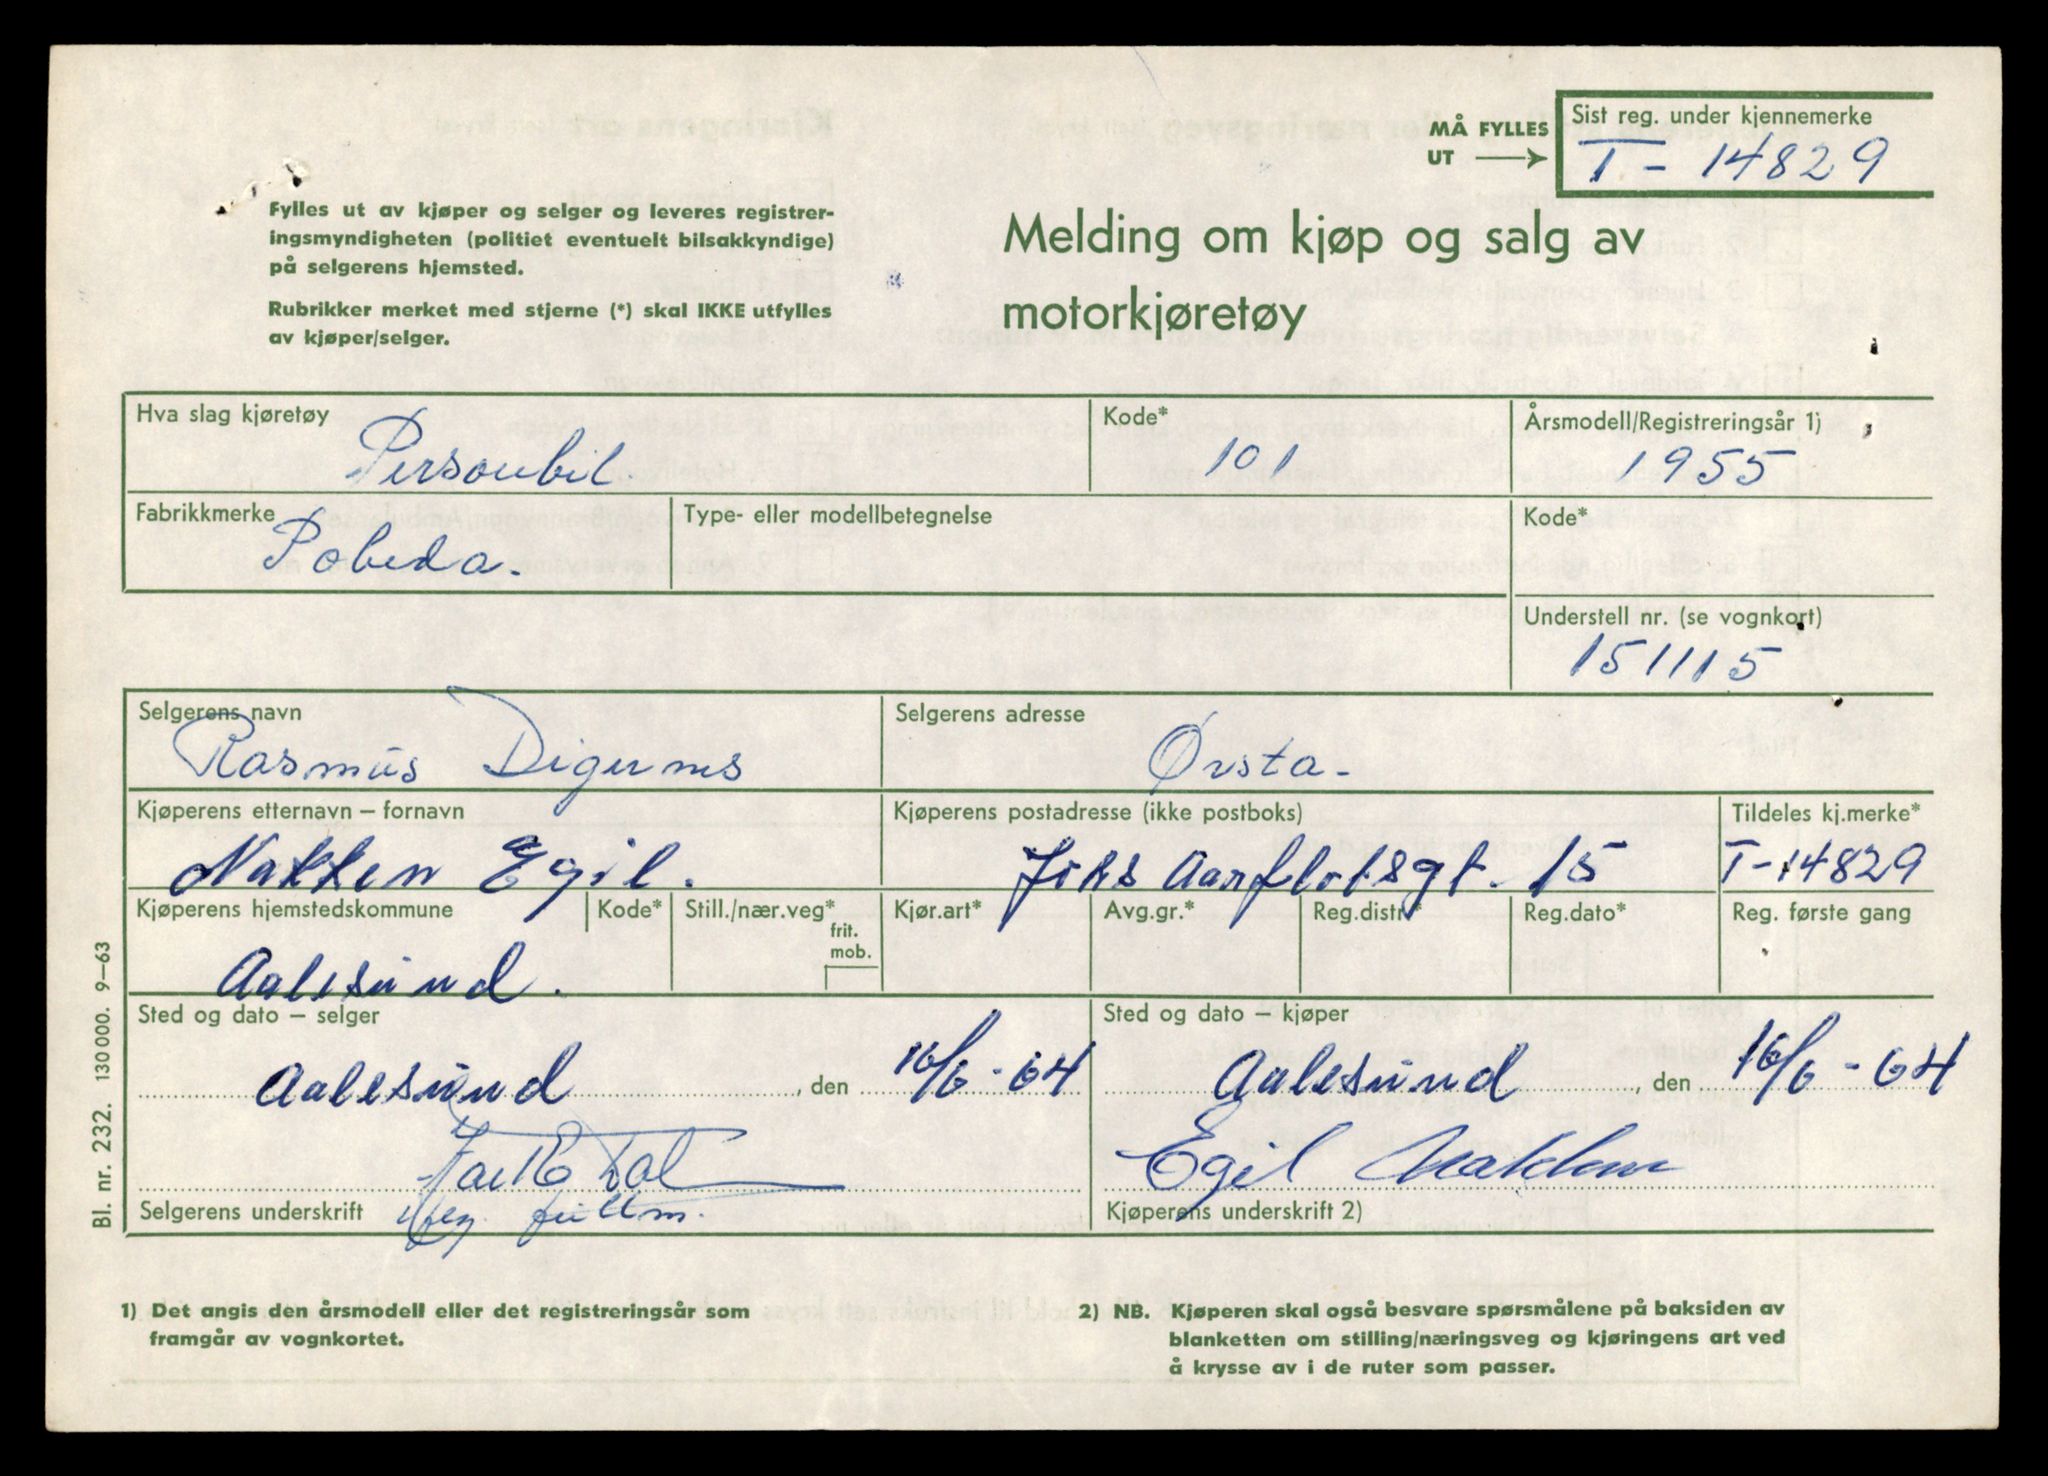 MÅ FYLLES UT
Sist reg. under kjennemerke
T - 14829
Fylles ut av kjøper og selger og leveres registrer-
ingsmyndigheten (politiet eventuelt bilsakkyndige)
på selgerens hjemsted.
Rubrikker merket med stjerne (*) skal IKKE utfylles
av kjøper/selger.
Melding om kjøp og salg av
motorkjøretøy
Hva slag kjøretøy
Personbil.
Kode*
101
Årsmodell/Registreringsår 1)
1955
Fabrikkmerke
Pobeda.
Type- eller modellbetegnelse
Kode*
Understell nr. (se vognkort)
151115
Selgerens navn
Rasmus Digernes
Selgerens adresse
Ørsta-
Kjøperens etternavn – fornavn
Nakken Egil.
Kjøperens postadresse (ikke postboks)
Johs Aarflotsgt. 15
Tildeles kj.merke*
T-14829
Kjøperens hjemstedskommune
Aalesund.
Kode*
Still./nær.veg*
frit.
mob.
Kjør.art*
Avg.gr.*
Reg.distr.*
Reg.dato*
Reg. første gang
Sted og dato – selger
Aalesund, den 16/6-64
Selgerens underskrift
fullm.
Sted og dato – kjøper
Aalesund, den 16/6-64
Egil Nakken
Kjøperens underskrift 2)
Bl. nr. 232. 130 000. 9–63
1) Det angis den årsmodell eller det registreringsår som
framgår av vognkortet.
2) NB. Kjøperen skal også besvare spørsmålene på baksiden av
blanketten om stilling/næringsveg og kjøringens art ved
å krysse av i de ruter som passer.